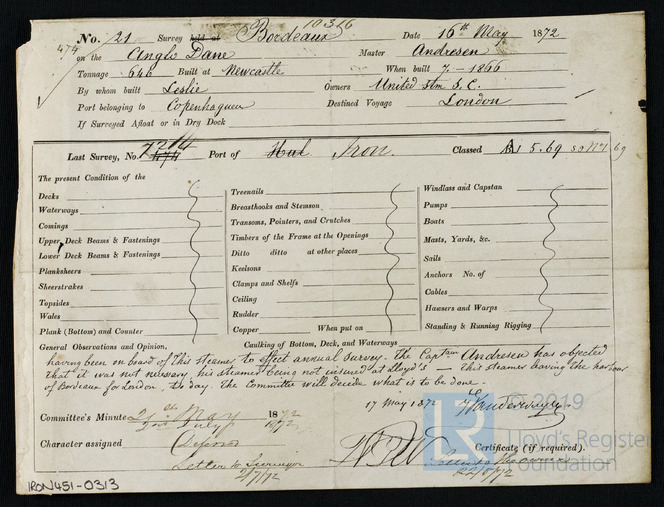 10316
No. 21 Survey held at Bordeaux Date 16th May 1872
474 on the Anglo Dane Master Andresen
Tonnage 646 Built at Newcastle When built 7 - 1866
By whom built Leslie Owners United Stm S. C.
Port belonging to Copenhaguen Destined Voyage London
If Surveyed Afloat or in Dry Dock
Last Survey, No. 7214 Port of Hul Iron. Classed A1 5.69
The present Condition of the
Decks
Waterways
Comings
Upper Deck Beams & Fastenings
Lower Deck Beams & Fastenings
Planksheers
Sheerstrakes
Topsides
Wales
Plank (Bottom) and Counter
Treenails
Breasthooks and Stemson
Transoms, Pointers, and Crutches
Timbers of the Frame at the Openings
Ditto ditto at other places
Keelsons
Clamps and Shelfs
Ceiling
Rudder
Copper When put on
Windlass and Capstan
Pumps
Boats
Masts, Yards, &c.
Sails
Anchors No. of
Cables
Hawsers and Warps
Standing & Running Rigging
General Observations and Opinion, Caulking of Bottom, Deck, and Waterways
having been on board of this steamer to effect annual survey. the Captain Andresen has objected
that it was not necessary his steamer being not insured at Lloyd's — This steamer having the harbour
of Bordeaux for London, this day. The Committee will decide what is to be done.
17 May 1872
Committee's Minute 21st May 1872
2nd July 1872
Character assigned Deferred
Certificate (if required).
Letter to Surveyor
2/7/72
IRON451-0313
© 2019
LR
Lloyd's Register
Foundation